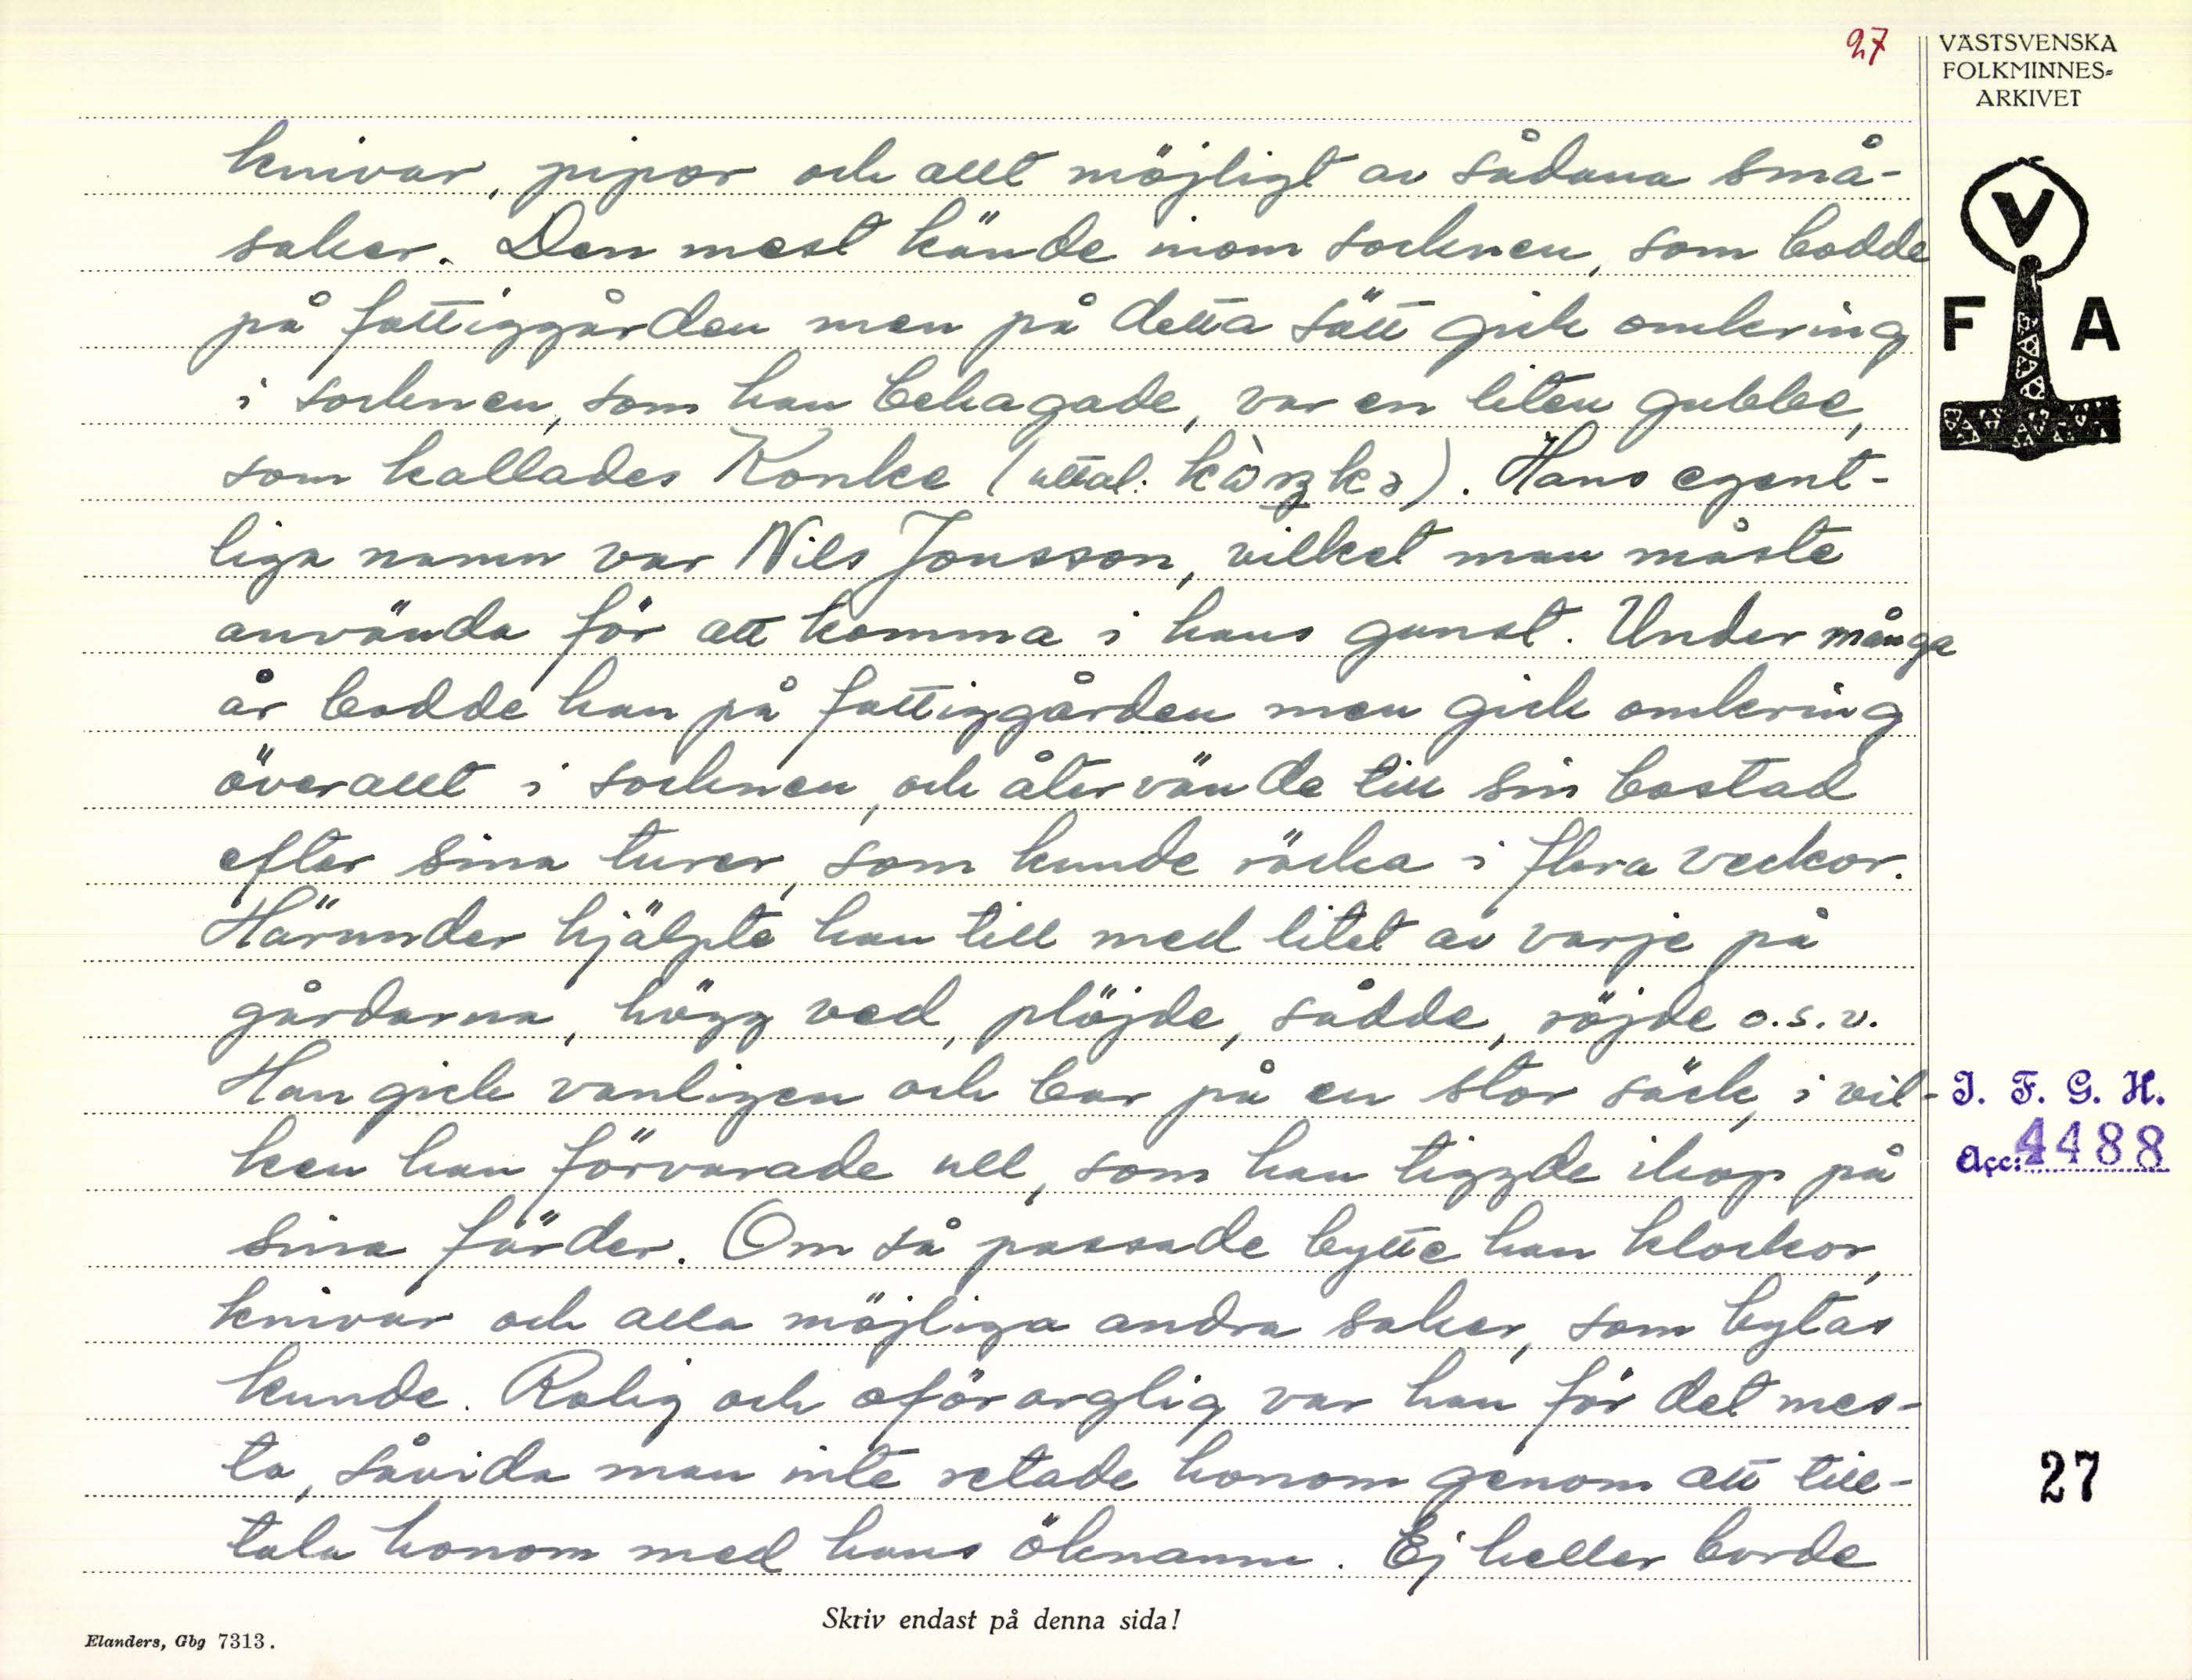 27
VÄSTSVENSKA
FOLKMINNES=
ARKIVET
knivar, pipor och allt möjligt av sådana små-
saker. Den mest kände inom socknen, som bodde
på fattiggården men på detta sätt gick omkring
i socknen, som han behagade, var en liten gubbe,
som kallades Konke (uttal: ). Hans egent-
liga namn var Nils Jonsson, vilket man måste
använda för att komma i hans gunst. Under många
år bodde han på fattiggården men gick omkring
överallt i socknen, och återvände till sin bostad
efter sina turer, som kunde räcka i flera veckor.
Härunder hjälpte han till med litet av varje på
gårdarna, högg ved, plöjde, sådde, röjde o.s.v.
Han gick vanligen och bar på en stor säck, i vil-
ken han förvarade ull, som han tiggde ihop på
sina färder. Om så passade bytte han klockor,
knivar och alla möjliga andra saker, som bytas
kunde. Rolig och oförarglig var han för det mes-
ta, såvida man inte retade honom genom att till-
tala honom med hans öknamn. Ej heller borde
V
F A
I. F. G. H.
Acc: 4488
27
Skriv endast på denna sida!
Elanders, Gbg 7313.